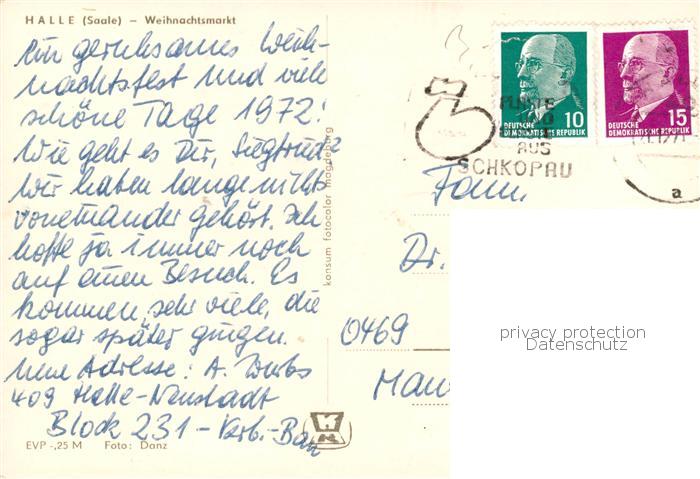 HALLE (Saale) – Weihnachtsmarkt
Ein geruhsames Weih-
nachtsfest und viele
schöne Tage 1972!
Wie geht es Dir, Siegfried?
Wir haben lange nichts
voneinander gehört. Ich
hoffe ja immer noch
auf einen Besuch. Es
kommen sehr viele, die
sogar später gingen.
Neue Adresse: A.
409 Halle-Neustadt
Block 231 -
EVP -,25 M Foto: Danz
konsum fotocolor magdeburg
10
DEUTSCHE
DEMOKRATISCHE REPUBLIK
15
DEUTSCHE
DEMOKRATISCHE REPUBLIK
PLASTE
AUS
SCHKOPAU
a
Fam.
Dr.
0469
privacy protection
Datenschutz